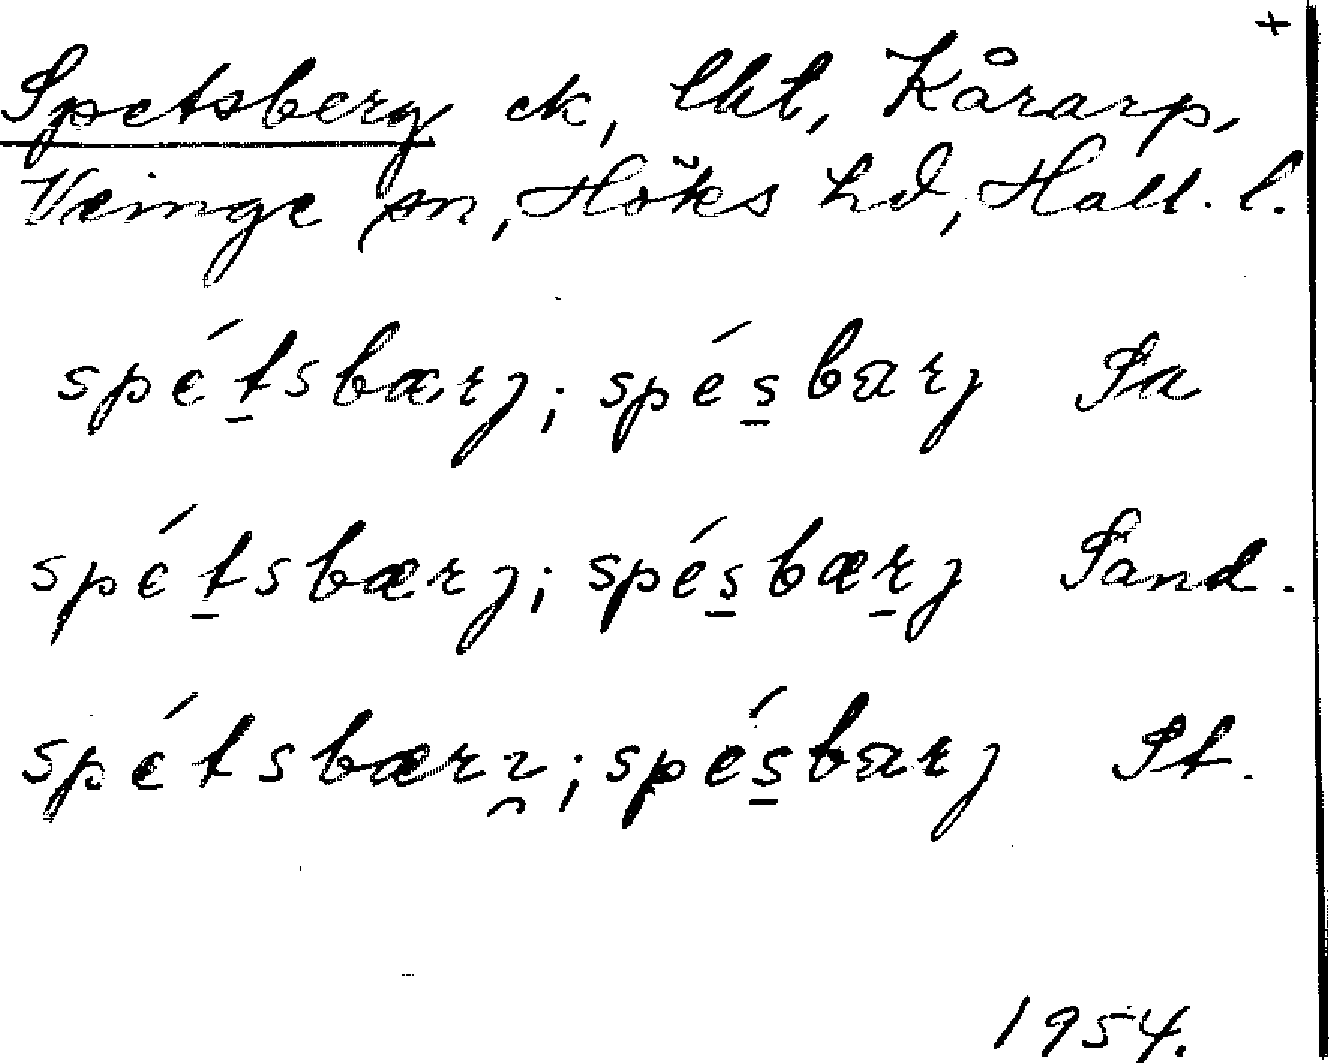 +
Spetsberg ck, lht, Kårarp,
Veinge sn, Höks hd, Hall. l.
spétsbærj; spésbarj Sa
spétsbærj; spésbærj Sand.
spétsbærj; spésbarj St.
1954.